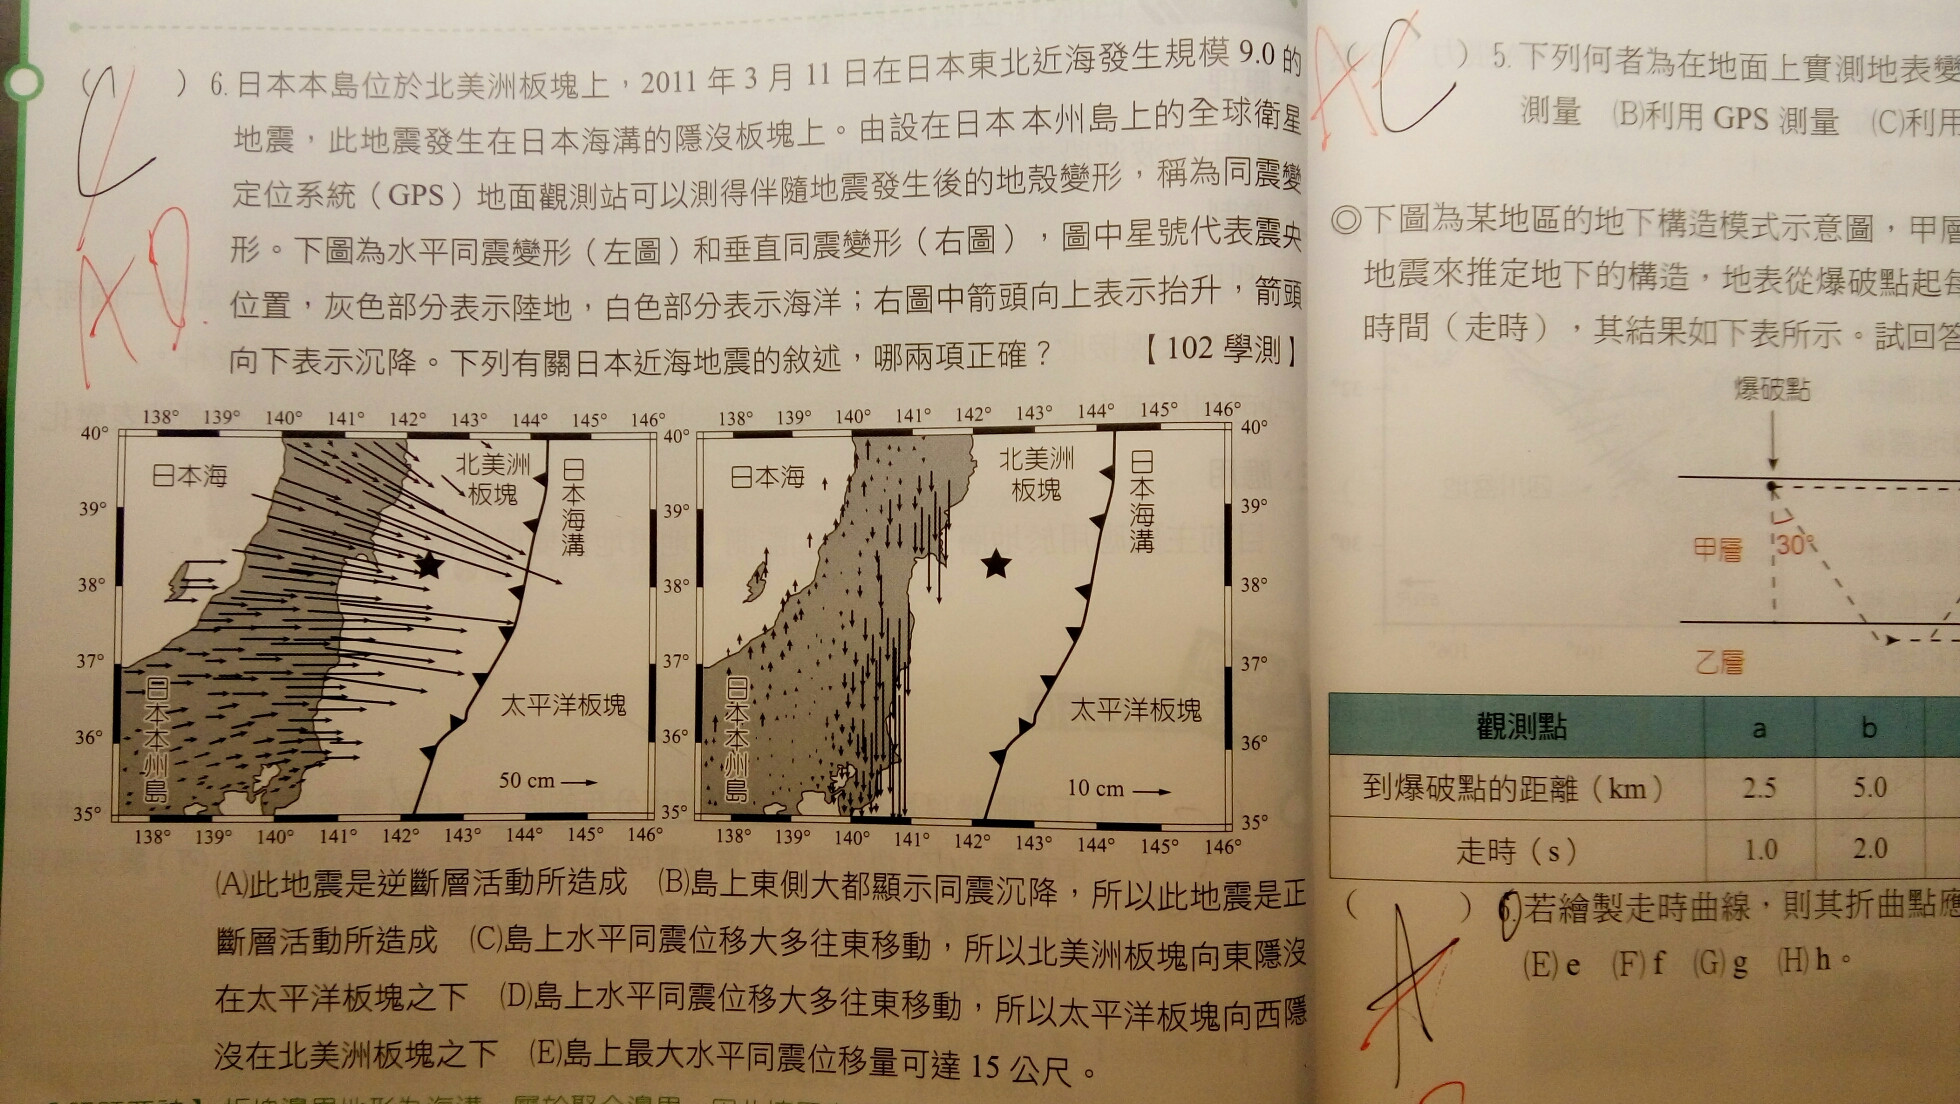 ( C ) 6. 日本本島位於北美洲板塊上，2011 年 3 月 11 日在日本東北近海發生規模 9.0 的
地震，此地震發生在日本海溝的隱沒板塊上。由設在日本本州島上的全球衛星
定位系統（GPS）地面觀測站可以測得伴隨地震發生後的地殼變形，稱為同震變
形。下圖為水平同震變形（左圖）和垂直同震變形（右圖），圖中星號代表震央
位置，灰色部分表示陸地，白色部分表示海洋；右圖中箭頭向上表示抬升，箭頭
向下表示沉降。下列有關日本近海地震的敘述，哪兩項正確？ 【102 學測】
AD.
138° 139° 140° 141° 142° 143° 144° 145° 146°
40°
39°
38°
37°
36°
35°
日本海
北美洲
板塊
日本海溝
太平洋板塊
日本本州島
50 cm
138° 139° 140° 141° 142° 143° 144° 145° 146°
138° 139° 140° 141° 142° 143° 144° 145° 146°
40° 40°
39° 39°
38° 38°
37° 37°
36° 36°
35° 35°
日本海
北美洲
板塊
日本海溝
太平洋板塊
日本本州島
10 cm
138° 139° 140° 141° 142° 143° 144° 145° 146°
(A)此地震是逆斷層活動所造成 (B)島上東側大都顯示同震沉降，所以此地震是正
斷層活動所造成 (C)島上水平同震位移大多往東移動，所以北美洲板塊向東隱沒
在太平洋板塊之下 (D)島上水平同震位移大多往東移動，所以太平洋板塊向西隱
沒在北美洲板塊之下 (E)島上最大水平同震位移量可達 15 公尺。
A ( C ) 5. 下列何者為在地面上實測地表變
測量 (B)利用 GPS 測量 (C)利用
◎下圖為某地區的地下構造模式示意圖，甲層
地震來推定地下的構造，地表從爆破點起每
時間（走時），其結果如下表所示。試回答
爆破點
甲層 30°
乙層
觀測點 a b
到爆破點的距離（km） 2.5 5.0
走時（s） 1.0 2.0
( A ) 6. 若繪製走時曲線，則其折曲點應
(E) e (F) f (G) g (H) h。